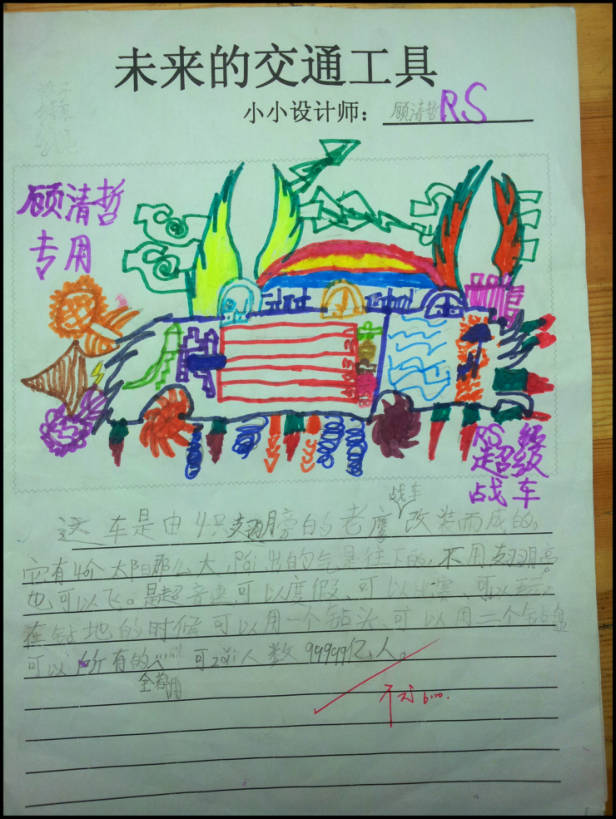 未来的交通工具
小小设计师：顾清哲RS
顾清哲
专用
RS 超级
战车
战车
这车是由4只翅膀的老鹰改装而成的,
它有4个太阳那么大,的气是往下的,不用翅膀
也可以飞。是超音速可以度假、可以
在钻地的时候可以用一个钻头、可以用二个
可以 所有的 人数99999亿人。
全部用